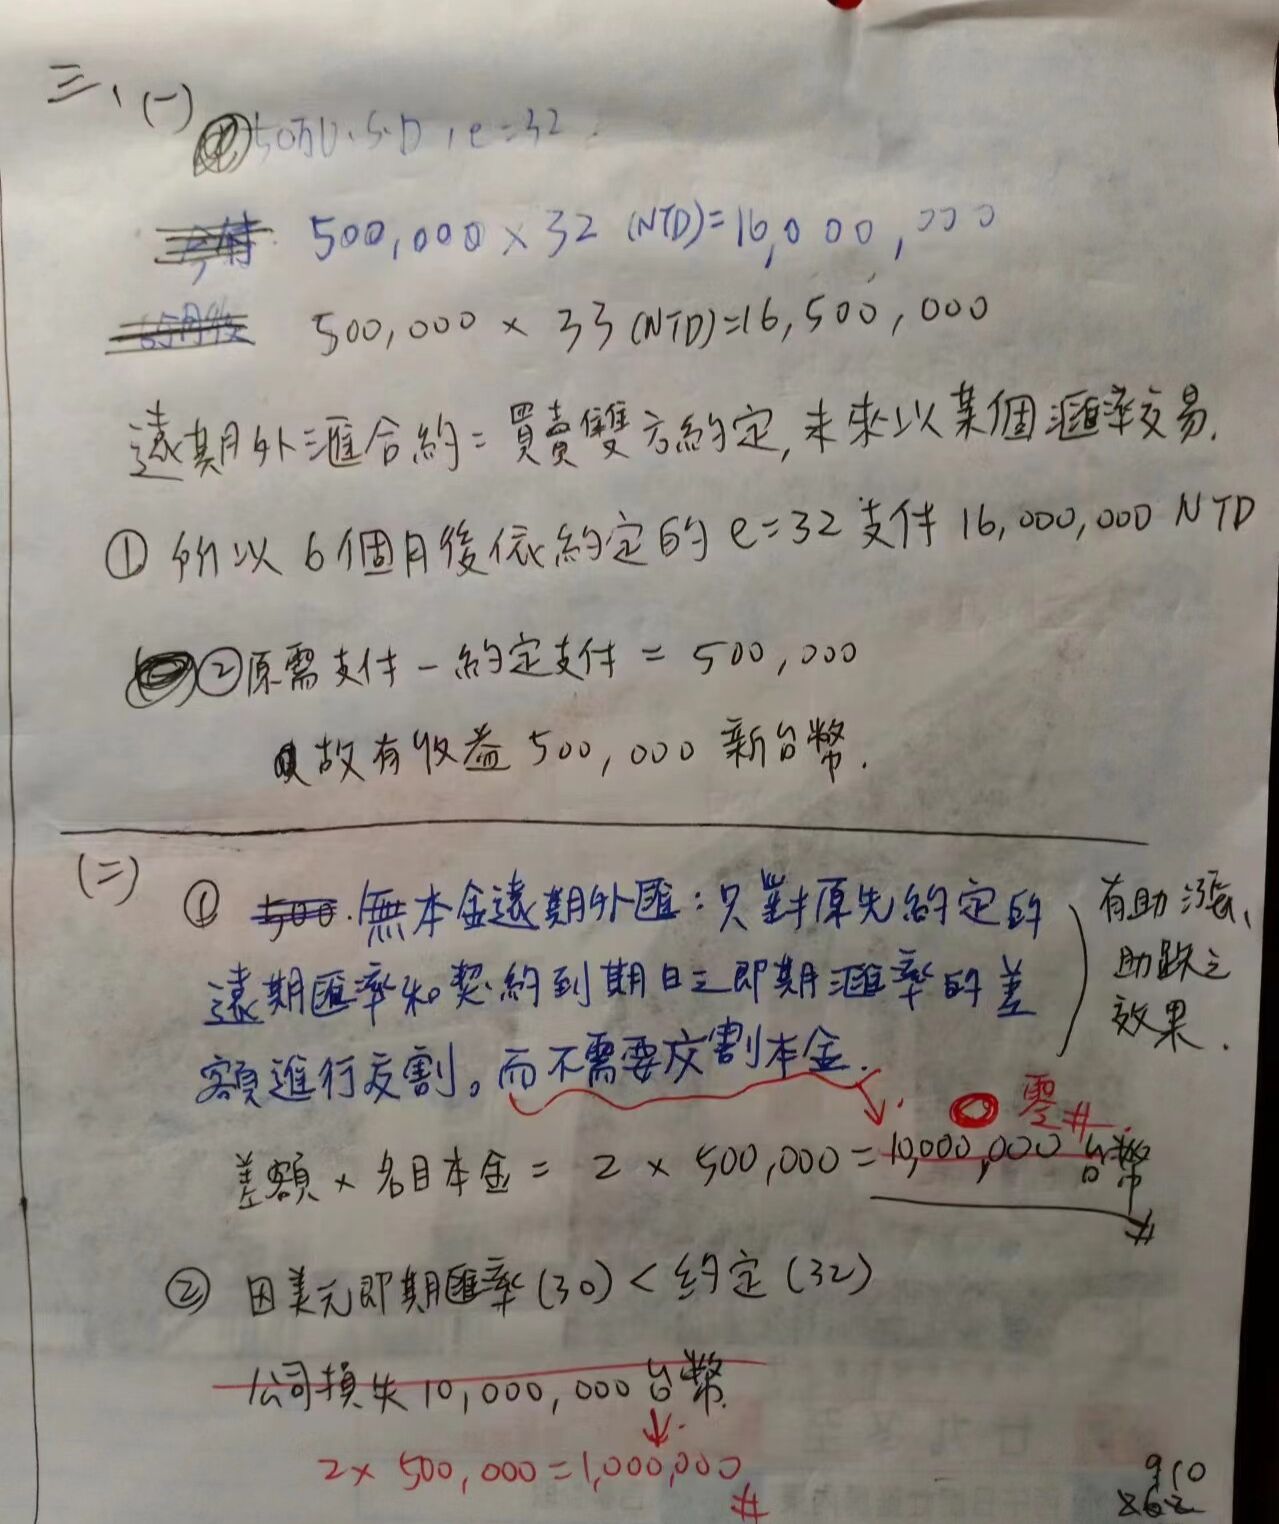 三、(一)
50萬U.S.D, e=32.
500,000 × 32 (NTD)=16,000,000
500,000 × 33 (NTD)=16,500,000
遠期外匯合約=買賣雙方約定,未來以某個匯率交易.
① 所以 6個月後依約定的 e=32 支付 16,000,000 NTD
②原需支付-約定支付 = 500,000
故有收益 500,000 新台幣.
(二)
① 500.無本金遠期外匯:只對原先約定的
遠期匯率和契約到期日之即期匯率的差
額進行交割。而不需要交割本金.
有助漲、
助跌之
效果.
零#.
差額 × 名目本金 = 2 × 500,000=10,000,000 台幣
#
② 因美元即期匯率(30) < 約定(32)
公司損失 10,000,000 台幣.
2 × 500,000=1,000,000
#
910